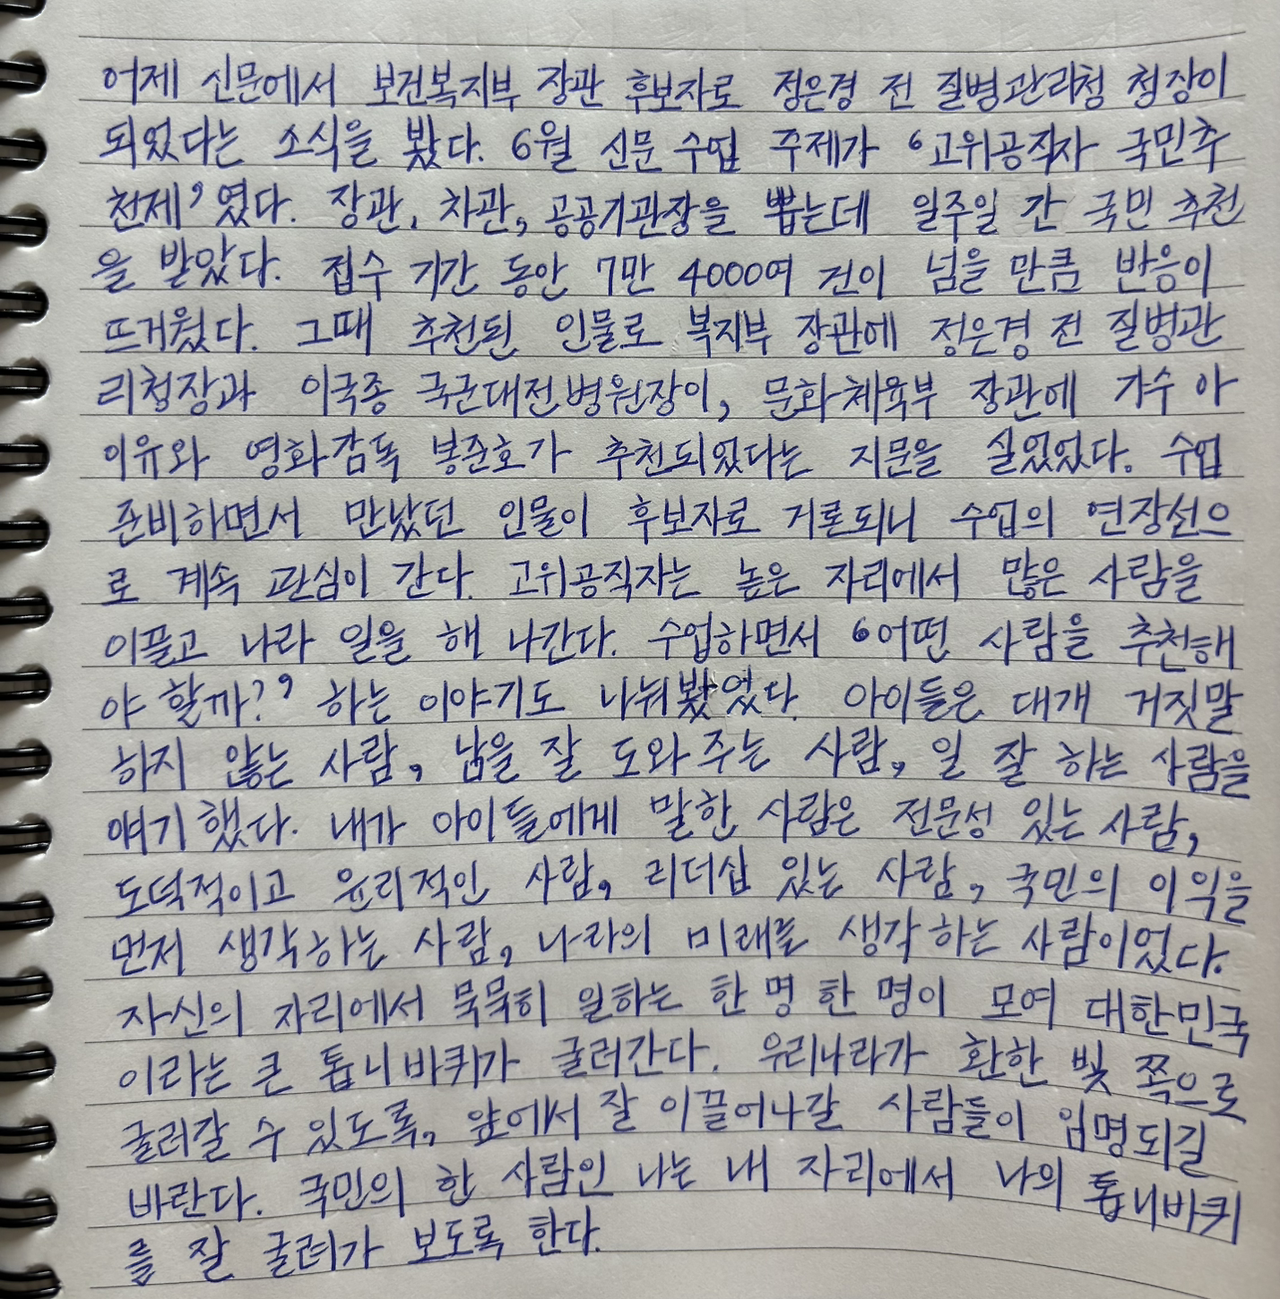 어제 신문에서 보건복지부 장관 후보자로 정은경 전 질병관리청 청장이
되었다는 소식을 봤다. 6월 신문 수업 주제가 '고위공직자 국민추
천제'였다. 장관, 차관, 공공기관장을 뽑는데 일주일 간 국민 추천
을 받았다. 접수 기간 동안 7만 4000여 건이 넘을 만큼 반응이
뜨거웠다. 그때 추천된 인물로 복지부 장관에 정은경 전 질병관
리청장과 이국종 국군대전병원장이, 문화체육부 장관에 가수 아
이유와 영화감독 봉준호가 추천되었다는 지문을 실었었다. 수업
준비하면서 만났던 인물이 후보자로 거론되니 수업의 연장선으
로 계속 관심이 간다. 고위공직자는 높은 자리에서 많은 사람을
이끌고 나라 일을 해 나간다. 수업하면서 '어떤 사람을 추천해
야 할까?' 하는 이야기도 나눠봤었다. 아이들은 대개 거짓말
하지 않는 사람, 남을 잘 도와주는 사람, 일 잘 하는 사람을
얘기했다. 내가 아이들에게 말한 사람은 전문성 있는 사람,
도덕적이고 윤리적인 사람, 리더십 있는 사람, 국민의 이익을
먼저 생각하는 사람, 나라의 미래를 생각하는 사람이었다.
자신의 자리에서 묵묵히 일하는 한 명 한 명이 모여 대한민국
이라는 큰 톱니바퀴가 굴러간다. 우리나라가 환한 빛 쪽으로
굴러갈 수 있도록, 앞에서 잘 이끌어나갈 사람들이 임명되길
바란다. 국민의 한 사람인 나는 내 자리에서 나의 톱니바퀴
를 잘 굴려가 보도록 한다.